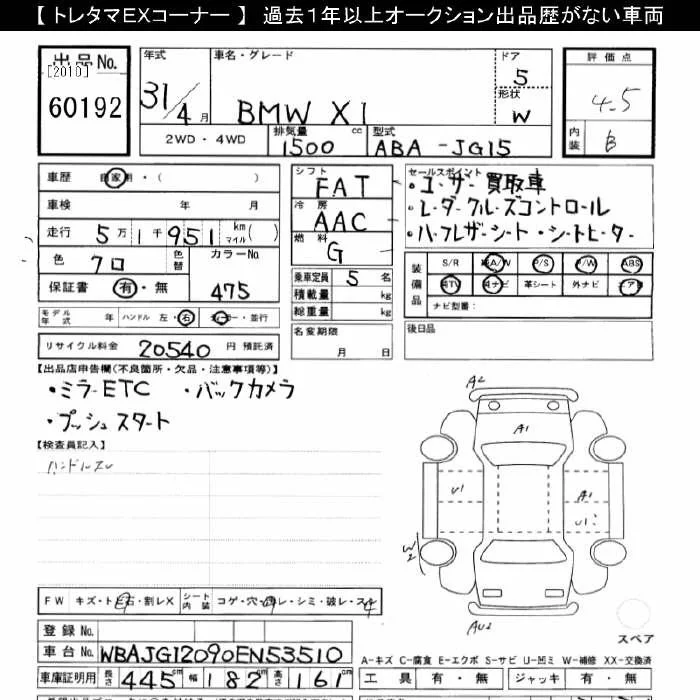 【 トレタマEXコーナー 】 過去1年以上オークション出品歴がない車両
出品No.
[2010]
60192
年式
31/4月
車名・グレード
BMW X1
ドア
5
形状
W
評価点
4.5
内装
B
2WD・4WD
排気量
1500 cc
型式
ABA-JG15
車歴
自家用・( )
車検 年 月
走行 5万1千951 km マイル ( )
色
クロ
色替
カラーNo
475
保証書 有・無
モデル年式 年 ハンドル 左・右 ・並行
リサイクル料金 20540 円 預託済
シフト
FAT
冷房
AAC
燃料
G
乗車定員 5 名
積載量 kg
総重量 kg
名変期限
月 日
セールスポイント
・ユーザー買取車
・レーダークルーズコントロール
・ハーフレザーシート・シートヒーター
装備品
S/R A/W P/S P/W ABS
TV ナビ 革シート 外ナビ エアB
ナビ型番:
後日品
【出品店申告欄(不良箇所・欠品・注意事項等)】
・ミラーETC ・バックカメラ
・プッシュスタート
【検査員記入】
ハンドルスレ
A2
A1
U1
A1
W2
AU2
スペア
FW キズ・ト 石・割レX シート内装 コゲ・穴・ レ・シミ・破レ・ス
登録No.
車台No. WBAJG12090EN53510
車庫証明用 長さ 445cm 幅 182cm 高さ 161cm
A-キズ C-腐食 E-エクボ S-サビ U-凹ミ W-補修 XX-交換済
工具 有・無 ジャッキ 有・無